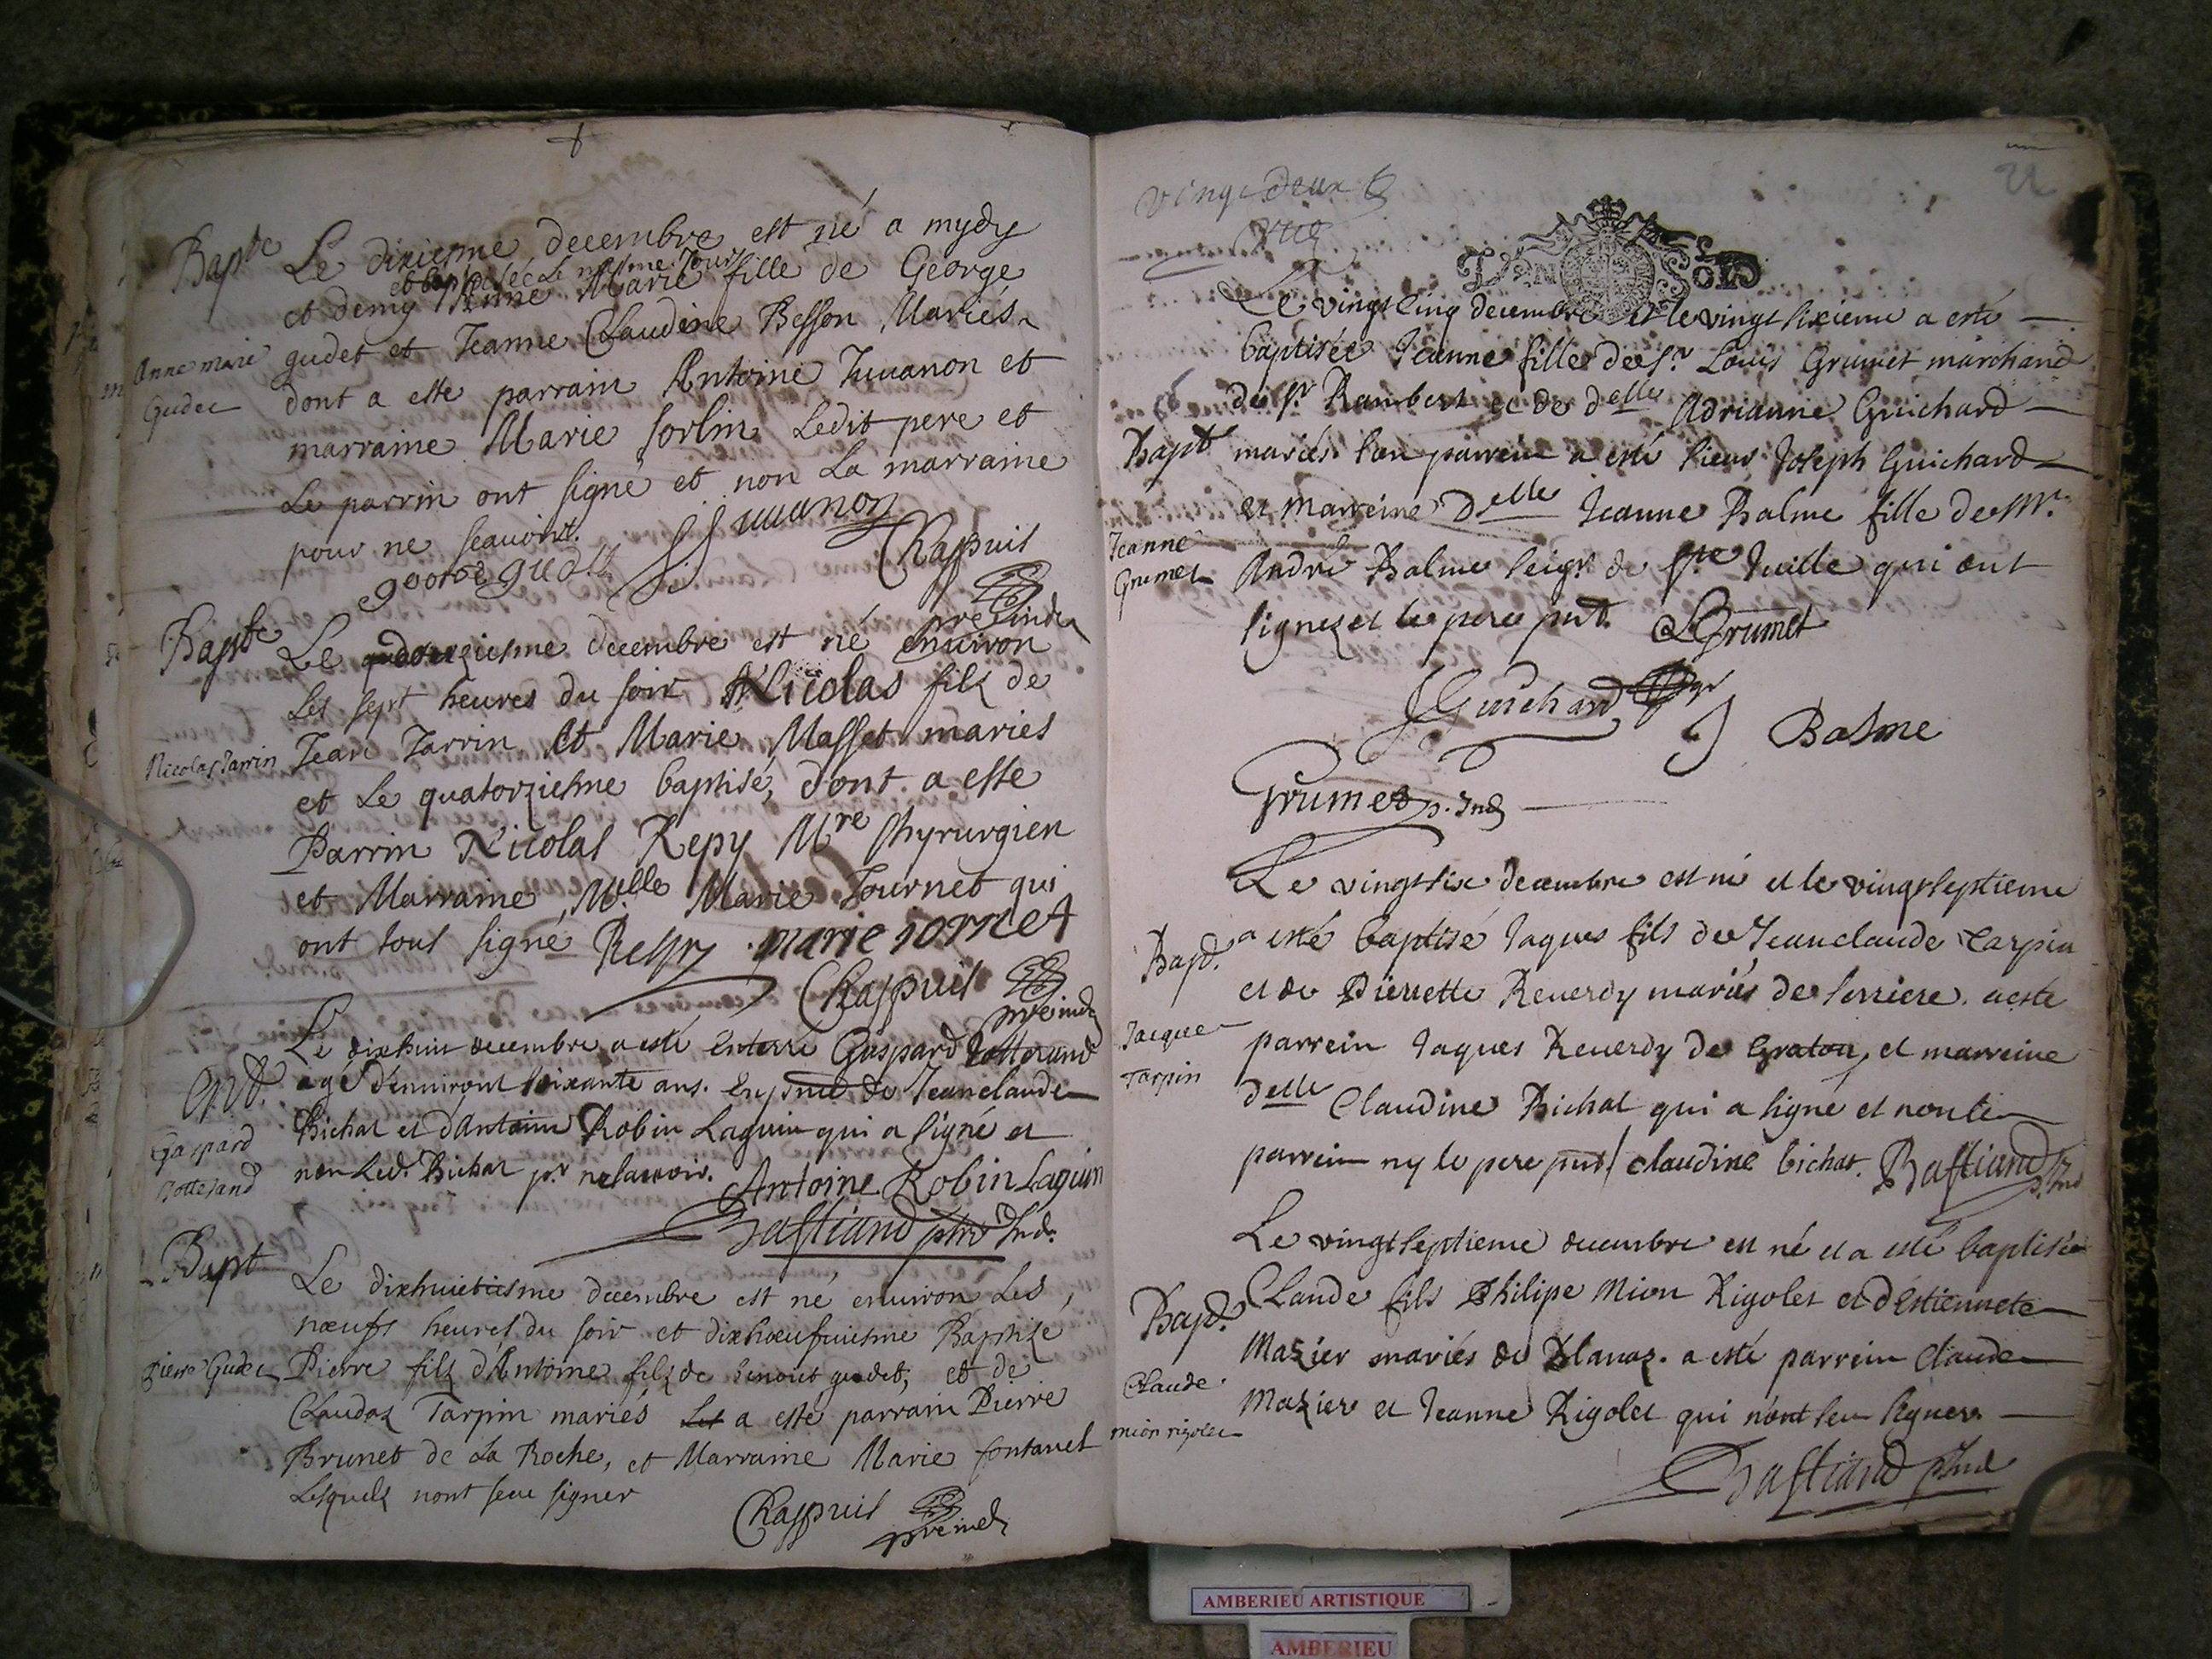 Bapte
Le dixiesme decembre est né a mydy
et baptisée Le mesme Jour
et demy Anne Marie fille de George
gudet et Jeanne Claudine Besson Mariés
Anne marie
Gudet
dont a este parrain Antoine Juuanon et
marraine Marie Sorlin Ledit pere et
Le parrin ont signé et non La marraine
pour ne scauoir.
george gudet
Juuanon
Chappuis
pre Indi
Bapte
Le douziesme decembre est né enuiron
Les sept heures du soir Nicolas fils de
Nicolas Jarrin
Jean Jarrin et Marie Masset mariés
et Le quatorziesme baptisé, dont a este
Parrin Nicolas Repy Mre Chyrurgien
et Marraine Mlle Marie Journet qui
ont tous signé Repy marie jornet
Chappuis
pre indi
Le dixhuit decembre a esté enterré Gaspard Botterand
agé denuiront soixante ans. En pnce de Jeanclaude
Gaspard
Botterand
Bichat et dAntoine Robin Laguin qui a signé et
non Led. Bichat pr ne scauoir. Antoine Robin Laguin
Bastiand ptre Ind.
Bapt
Le dixhuictiesme decembre est né enuiron Les
nœufs heures du soir et dixnœufuiesme Baptise
Pierre Gudet
Pierre fils d'Antoine fils de benoit gudet, et de
Claudaz Tarpin mariés a este parrain Pierre
Brunet de La Roche, et Marraine Marie fontanel
Lesquels nont sceu signer
Chappuis
pre indi
vingt deux
22
DEN SOLS
Le vingt cinq decembre et le vingt sixieme a esté
baptisée Jeanne fille de Sr. Louis Grumet marchand
de St Rambert et de delle Adrianne Guichard
Bapt
mariés. son parrein a esté sieur Joseph Guichard
et marreine Delle Jeanne Balme fille de Mr.
Jeanne
Grumet
André Balme seigr de Ste Juille qui ont
signez et le pere pnt. LGrumet
JGuichard
J Balme
Grumet p. Ind
Le vingt six decembre est né et le vingt septieme
Bapt.
a esté baptisé Jaques fils de Jeanclaude Tarpin
et de Pierrette Reuerdy mariés de serriere. a este
Jacque
Tarpin
parrein Jaques Reuerdy de Graton, et marreine
delle Claudine Bichat qui a signé et non le
parrein ny le pere pnt / claudine bichat. Bastiand
p. Ind
Le vingt septieme decembre est né et a esté baptisée
Bapt.
Claude fils Philipe Mion Rigolet et d'Estiennete
Mazier mariés de Blanaz. a esté parrein Claude
Claude
mion rigolet
Mazier et Jeanne Rigolet qui n'ont sceu signer
Bastiand p Ind
AMBERIEU ARTISTIQUE
AMBERIEU